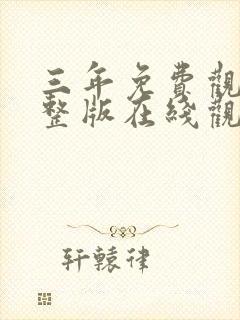 三年免費觀
整版在綫觀
轩辕律